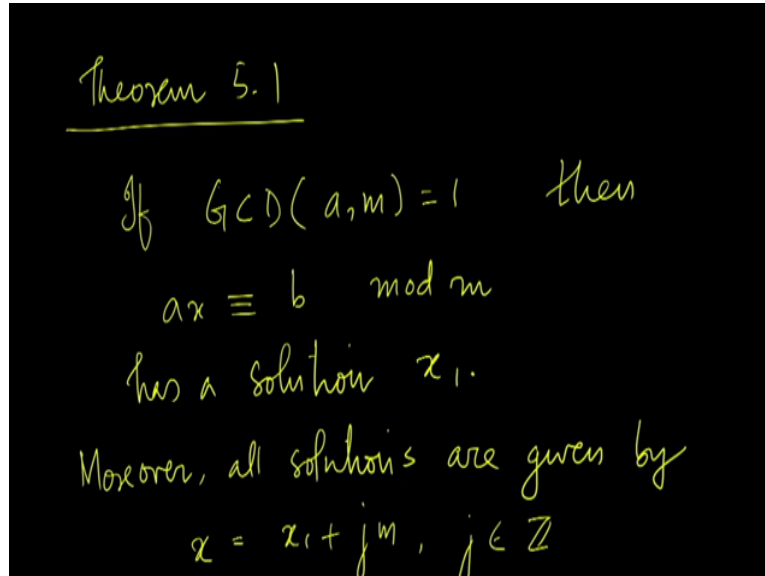 Theorem 5.1
If GCD(a,m)=1 then
ax ≡ b mod m
has a solution x₁.
Moreover, all solutions are given by
x = x₁+jm, j∈ℤ